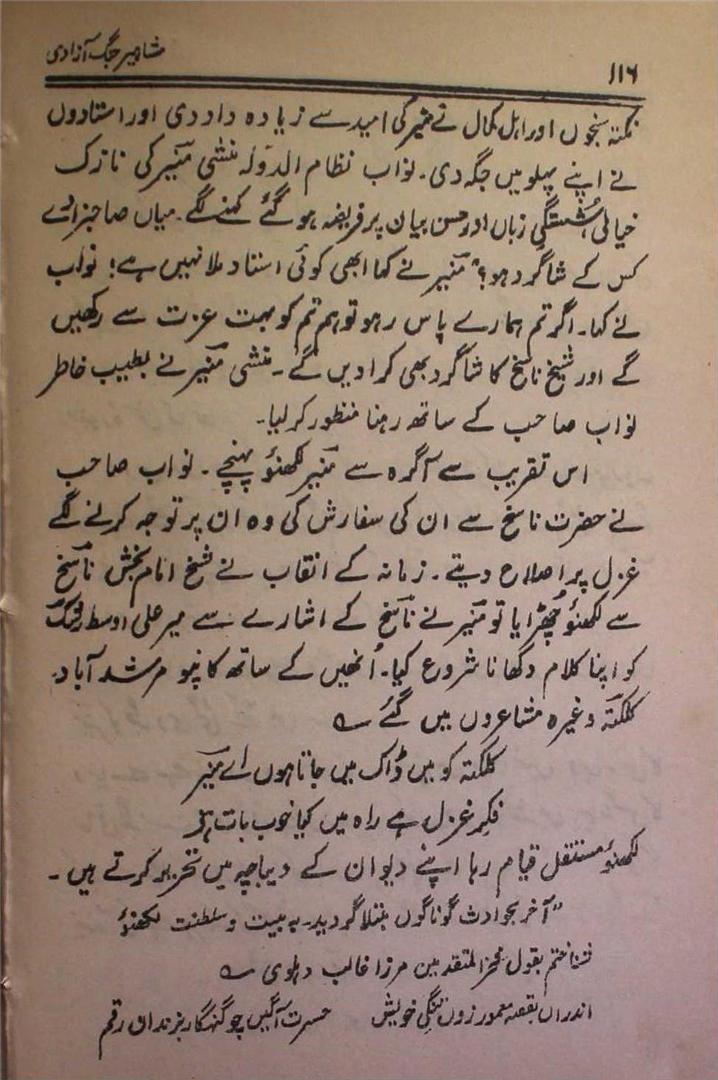 ۱۱۶
مشاہیر جنگ آزادی
نکتہ سنجوں اور اہل کمال نے منیر کی امید سے زیادہ داد دی اور استادوں
نے اپنے پہلو میں جگہ دی۔ نواب نظام الدولہ منشی منیر کی نازک
خیالی شستگی زباں اور حسن بیان پر فریفتہ ہو گئے کہنے لگے۔ میاں صاحبزادے
کس کے شاگرد ہو؟" منیر نے کہا ابھی کوئی استاد ملا نہیں ہے؛ نواب
نے کہا۔ اگر تم ہمارے پاس رہو تو ہم تم کو بہت عزت سے رکھیں
گے اور شیخ ناسخ کا شاگرد بھی کرا دیں گے۔ منشی منیر نے بطیب خاطر
نواب صاحب کے ساتھ رہنا منظور کر لیا۔
اس تقریب سے آگرہ سے منیر لکھنؤ پہنچے۔ نواب صاحب
نے حضرت ناسخ سے ان کی سفارش کی وہ ان پر توجہ کرنے لگے
غزل پر اصلاح دیتے۔ زمانہ کے انقلاب نے شیخ امام بخش ناسخ
سے لکھنؤ چھڑایا تو منیر نے ناسخ کے اشارے سے میر علی اوسط رشک
کو اپنا کلام دکھانا شروع کیا۔ اُنھیں کے ساتھ کانپو مرشد آباد،
کلکتہ وغیرہ مشاعروں میں گئے ؎
کلکتہ کو میں ڈاک میں جاتا ہوں اے منیر
فکرِ غزل ہے راہ میں کیا خوب بات ہے
لکھنؤ مستقل قیام رہا اپنے دیوان کے دیباچہ میں تحریر کرتے ہیں۔
"آخر بحوادث گوناگوں مبتلا گردید بہ بیت و سلطنت لکھنؤ
شناختم بقول فخر المتقدمین مرزا غالب دہلوی ؎
اندراں بقعہ معمور زوں تنگی خویش حسرت آگیں چو گنہگار بزنداں رقم